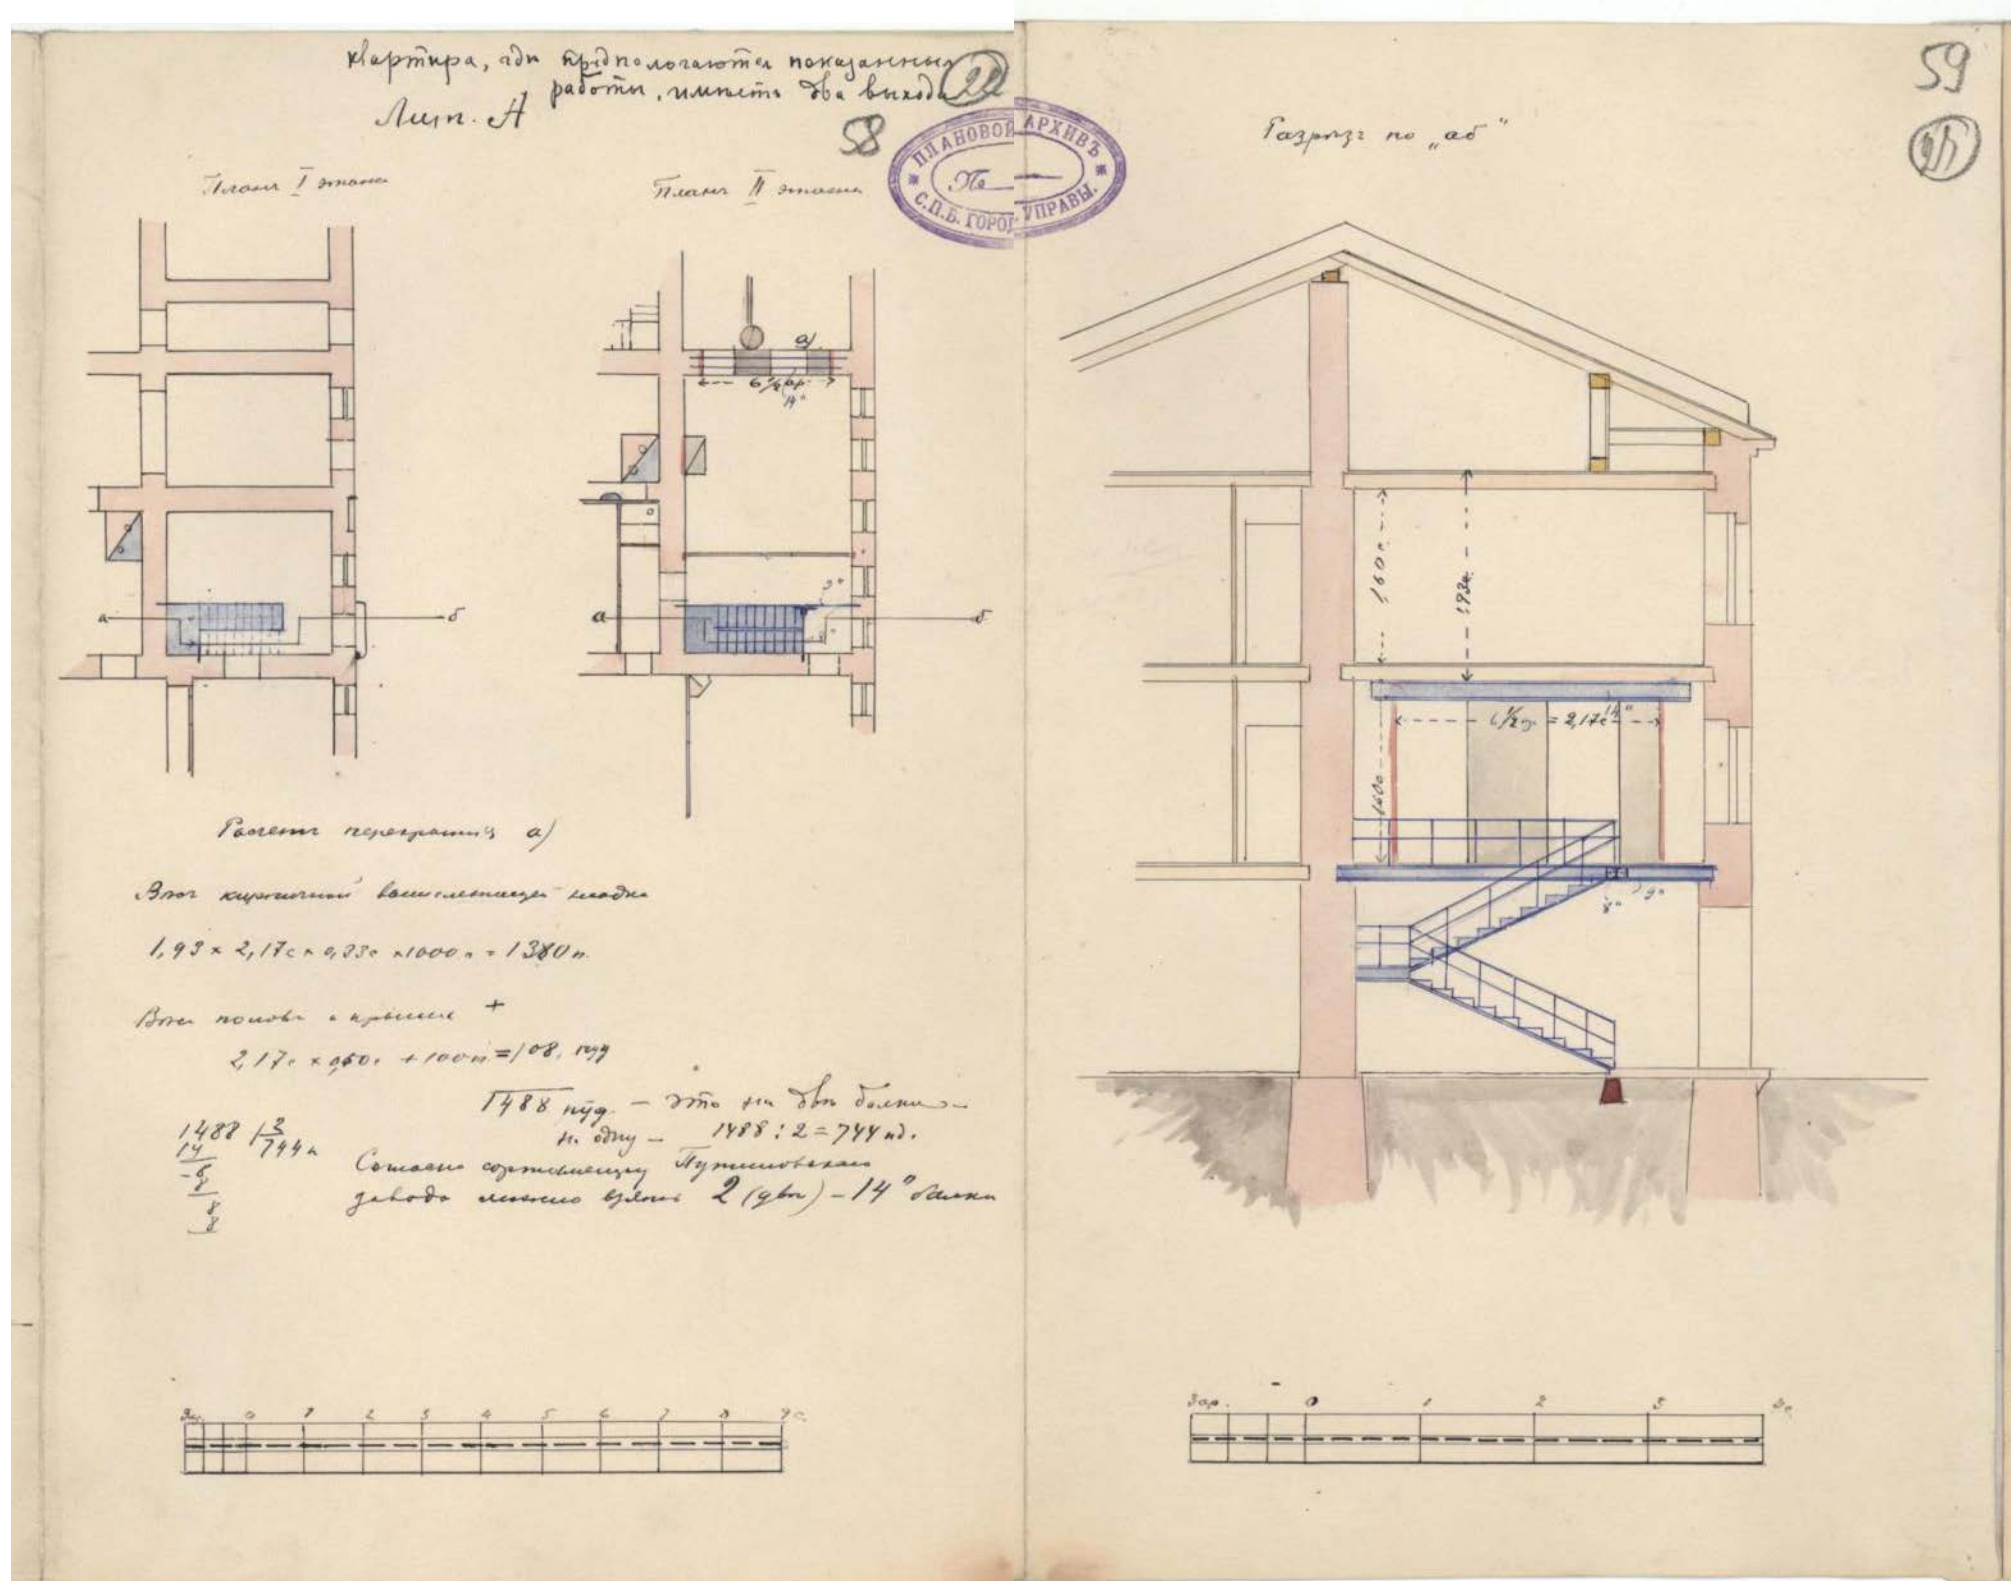 квартира, гдѣ предпологаются показанныя
работы, имѣетъ два выхода
22
Лит. А
58
ПЛАНОВОЙ АРХИВЪ
С.П.Б. ГОРОД. УПРАВЫ.
№
Планъ I этажа
Планъ II этажа
а)
6 1/2 ар.
14"
9"
а
б
а
б
Расчетъ перекрытія а)
Вѣсъ кирпичной вышележащей кладки
1,93 × 2,17с × 0,33с × 1000п = 1380п.
Вѣсъ половъ и крыши +
2,17с × 0,50с + 100п = 108. пуд
1488 пуд. — это на двѣ балки —
на одну — 1488 : 2 = 744 пд.
1488 | 2
14 744п
8
8
8
8
Согласно сортаменту Путиловскаго
завода можно взять 2 (двѣ) – 14" балки
3ар. 0 1 2 3 4 5 6 7 8 9с.
59
Разрѣзъ по „аб"
1,60с.
1,93с.
6 1/2 ар. = 2,17с
14"
1,60с
8"
9"
3ар. 0 1 2 3 4с